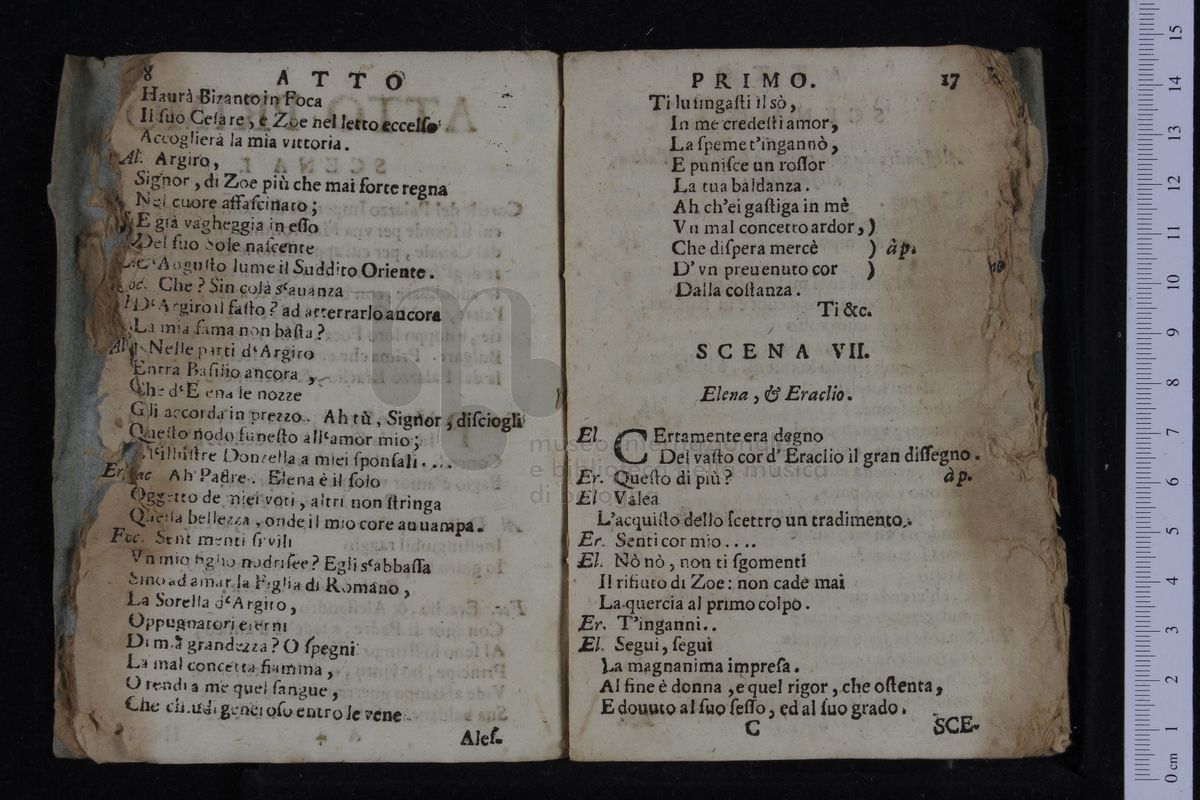 8 ATTO
Haurà Bizanto in Foca
Il suo Cesare, e Zoe nel letto eccelso
Accoglierà la mia vittoria.
Al. Argiro,
Signor, di Zoe più che mai forte regna
Nel cuore affascinato;
E già vagheggia in esso
Del suo Sole nascente
Augusto lume il Suddito Oriente.
Che? Sin colà s'auanza
D'Argiro il fasto? ad atterrarlo ancora
La mia fama non basta?
Al. Nelle parti d'Argiro
Entra Basilio ancora,
Che d'Elena le nozze
Gli accorda in prezzo. Ah tù, Signor, disciogli
Questo nodo funesto all'amor mio;
Donzella a miei sponsali....
Ah Padre. Elena è il solo
Oggetto de miei voti, altri non stringa
Quella bellezza, onde il mio core auuampa.
Foc. Sentimenti sì vili
Vn mio figlio nodrisce? Egli s'abbassa
Sino ad amar la Figlia di Romano,
La Sorella d'Argiro,
Oppugnatori eterni
Di mia grandezza? O spegni
La mal concetta fiamma,
O rendi a me quel sangue,
Che chiudi generoso entro le vene.
Ales-
PRIMO. 17
Ti lusingasti il sò,
In me credesti amor,
La speme t'ingannò,
E punisce un rossor
La tua baldanza.
Ah ch'ei gastiga in mè
Vn mal concetto ardor, )
Che dispera mercè ) à p.
D'vn preuenuto cor )
Dalla costanza.
Ti &c.
SCENA VII.
Elena, & Eraclio.
El. CErtamente era degno
Del vasto cor d'Eraclio il gran dissegno.
Er. Questo di più? à p.
El Valea
L'acquisto dello scettro un tradimento.
Er. Senti cor mio....
El. Nò nò, non ti sgomenti
Il rifiuto di Zoe: non cade mai
La quercia al primo colpo.
Er. T'inganni..
El. Segui, segui
La magnanima impresa.
Al fine è donna, e quel rigor, che ostenta,
E douuto al suo sesso, ed al suo grado.
C SCE-